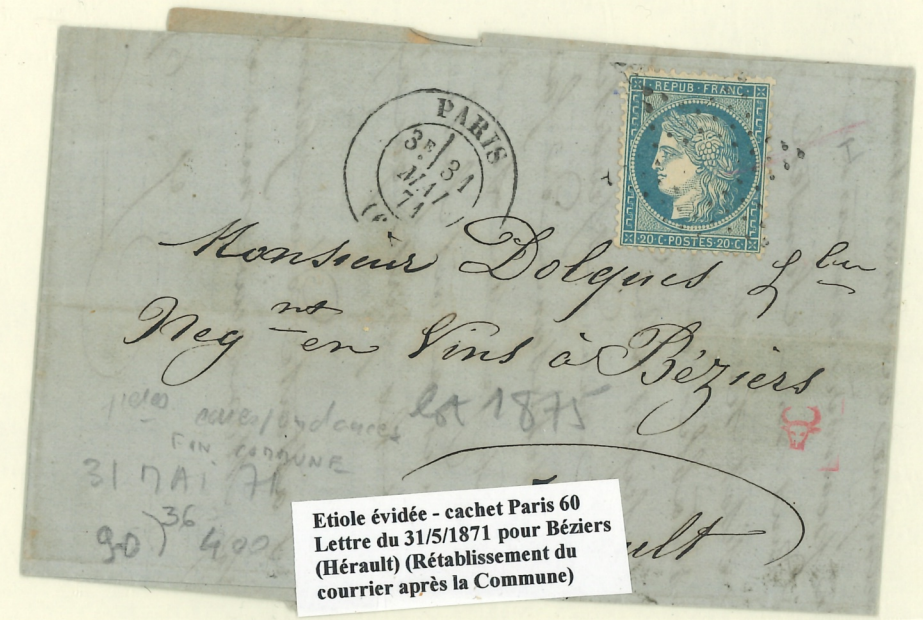 REPUB·FRANC
PARIS
3E 31
MAI
71
(6
20·C·POSTES·20·C
Monsieur Dolques
Negnt en Vins à Béziers
lot 1875
correspondances
FIN COMMUNE
31 MAI 71
36
90 400
Etiole évidée - cachet Paris 60
Lettre du 31/5/1871 pour Béziers
(Hérault) (Rétablissement du
courrier après la Commune)
ult